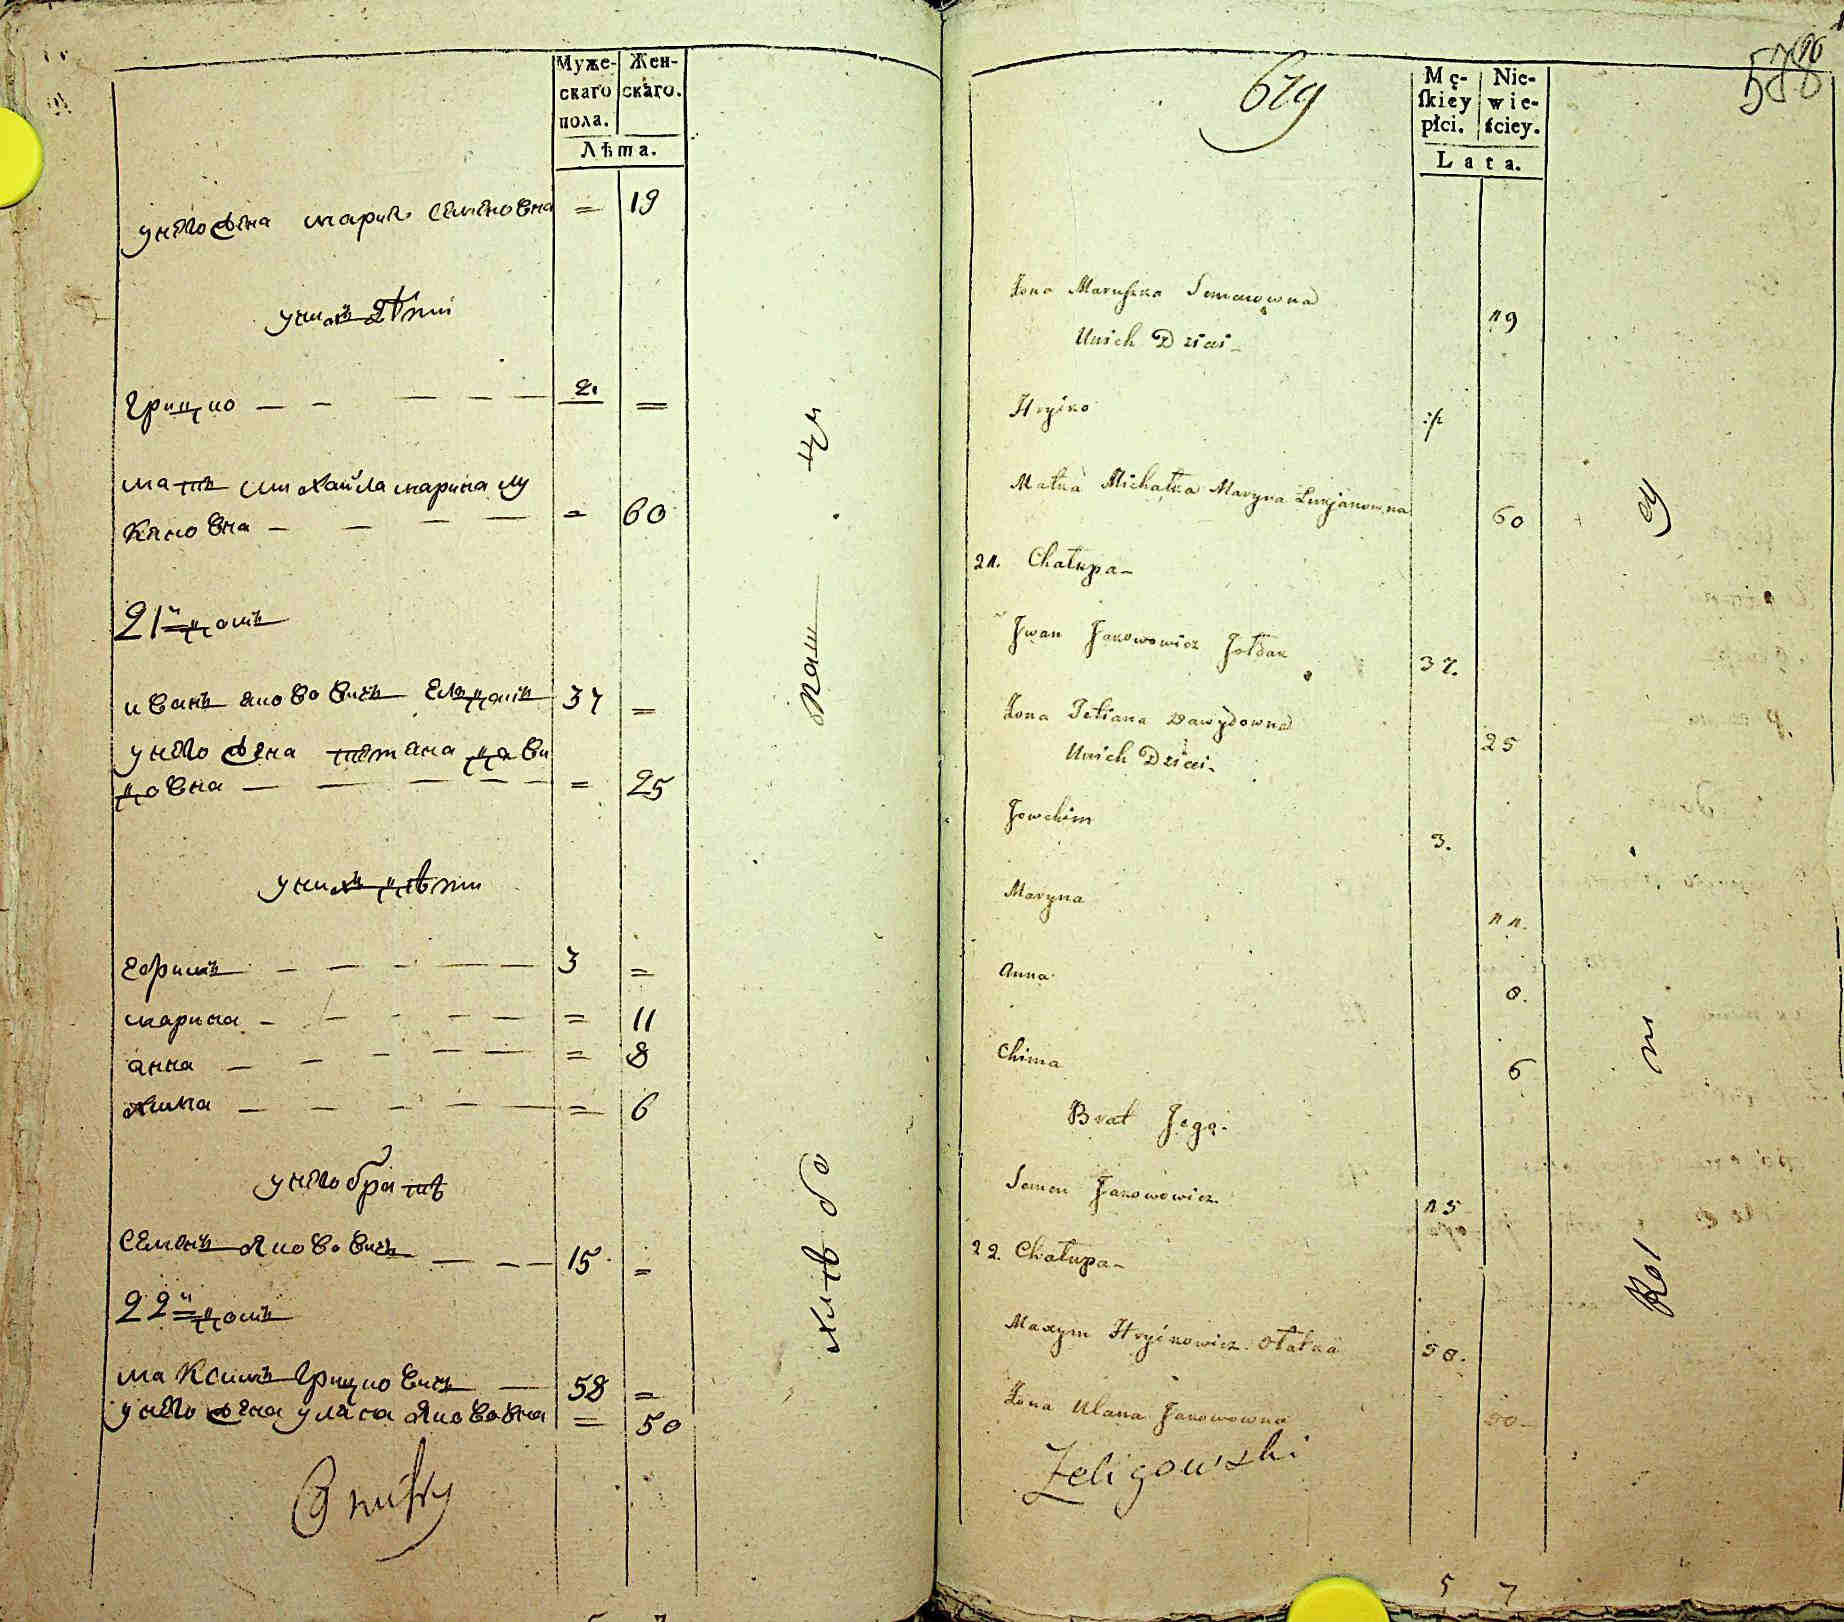 Муже-
скаго
пола.
Жен-
скаго.
Лѣта.
у него жена марил семеновна = 19
у нихъ дѣти
грицко 2. =
мать михайла марина лу
кяновна = 60
21й домъ
иванъ яковovичъ 37 =
у него жена татяна дави
довна = 25
у нихъ дѣти
марина = 11
анна = 8
химка = 6
у него братъ
семенъ яковovичъ 15 =
22й домъ
максимъ грицковичъ 58 =
у него жена уляна яковovна = 50
хлѣбо
паш
цы
629
588
96
Mę-
skiey
płci.
Nie-
wie-
ściey.
Lata.
Żona Maruszka Semenowna 19
Unich Dzieci
Hryćko 2
Matka Michałka Maryna Łukjanowna 60
21. Chałupa
Jwan Jakowowicz Jołdak 37.
Żona Tetiana Dawydowna 25
Unich Dzieci
Jowchim 3.
Maryna 11.
Anna 8.
Chima 6
Brat Jego.
Semen Jakowowicz 15
22. Chałupa
Maxym Hryćkowicz 58.
Żona Ulana Jakowowna 50
Żeligowski
5 7
Rol
ni
cy